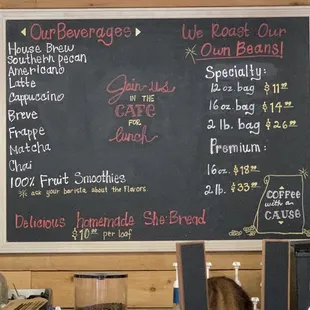 Our Beverages
House Brew
Southern pecan
Americano
Latte
Cappuccino
Breve
Frappe
Matcha
Chai
100% Fruit Smoothies
* ask your barista about the flavors
Delicious homemade She:Bread
$10.00 per loaf
Join us
IN THE
CAFE
FOR
lunch
We Roast Our
Own Beans!
Specialty:
12 oz. bag $11.00
16 oz. bag $14.00
2 lb. bag $26.00
Premium:
16 oz. $18.00
2 lb. $33.00
COFFEE
with a
CAUSE